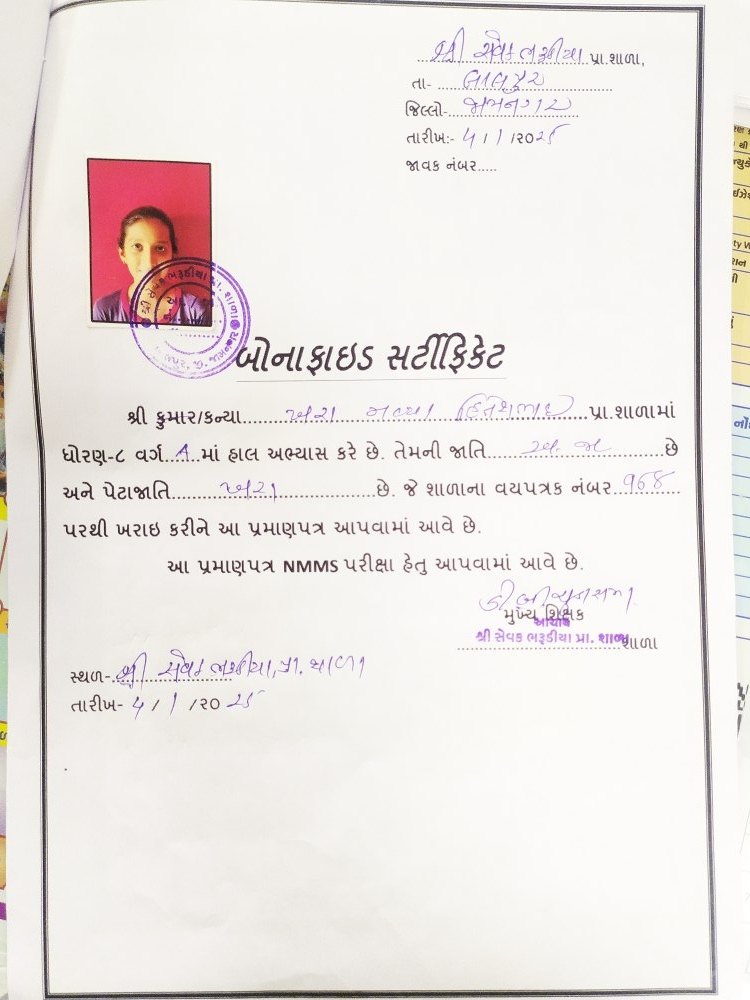 શ્રી સેવક ભરૂડીયા પ્રા.શાળા,
તા- લાલપુર
જિલ્લો- જામનગર
તારીખ:- 4 / 1 /૨૦૨૫
જાવક નંબર.....
શ્રી સેવક ભરૂડીયા પ્રા. શાળા
બોનાફાઇડ સર્ટીફિકેટ
શ્રી કુમાર/કન્યા ખરા નવ્યા હિતેશભાઇ પ્રા.શાળામાં
ધોરણ-૮ વર્ગ A માં હાલ અભ્યાસ કરે છે. તેમની જાતિ અ.જા છે
અને પેટાજાતિ ખરા છે. જે શાળાના વયપત્રક નંબર ૧૬૪
પરથી ખરાઇ કરીને આ પ્રમાણપત્ર આપવામાં આવે છે.
આ પ્રમાણપત્ર NMMS પરીક્ષા હેતુ આપવામાં આવે છે.
મુખ્ય શિક્ષક
આચાર્ય
શ્રી સેવક ભરૂડીયા પ્રા. શાળા શાળા
સ્થળ- શ્રી સેવક ભરૂડીયા, પ્રા. શાળા
તારીખ- 4 / 1 /૨૦૨૫